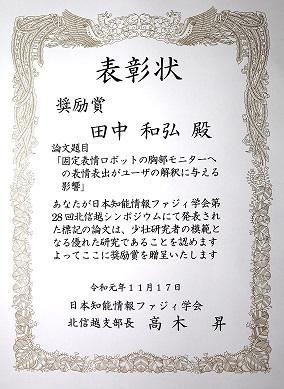 表彰状
奨励賞
田中 和弘 殿
論文題目
「固定表情ロボットの胸部モニターへ
の表情表出がユーザの解釈に与える
影響」
あなたが日本知能情報ファジィ学会第
28回北信越シンポジウムにて発表され
た標記の論文は、少壮研究者の模範と
なる優れた研究であることを認めます
よってここに奨励賞を贈呈いたします
令和元年11月17日
日本知能情報ファジィ学会
北信越支部長 高木 昇